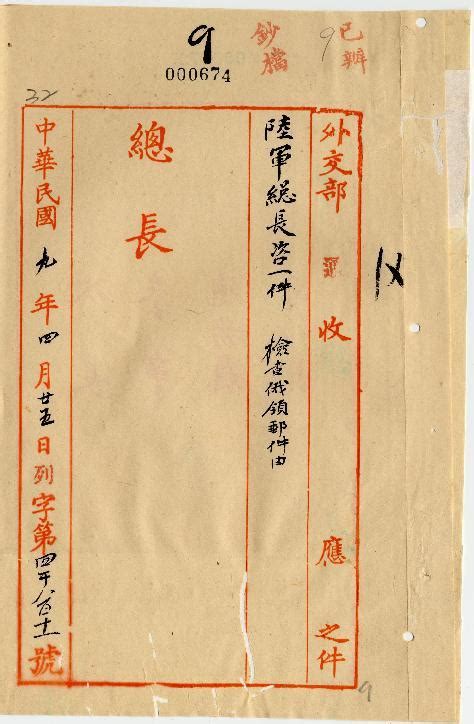 9
000674
鈔檔
9
已辦
32
外交部 收 應 之件
陸軍總長咨一件 檢查俄領郵件由
總長
中華民國九年四月廿五日列字第四千八百十一號
9